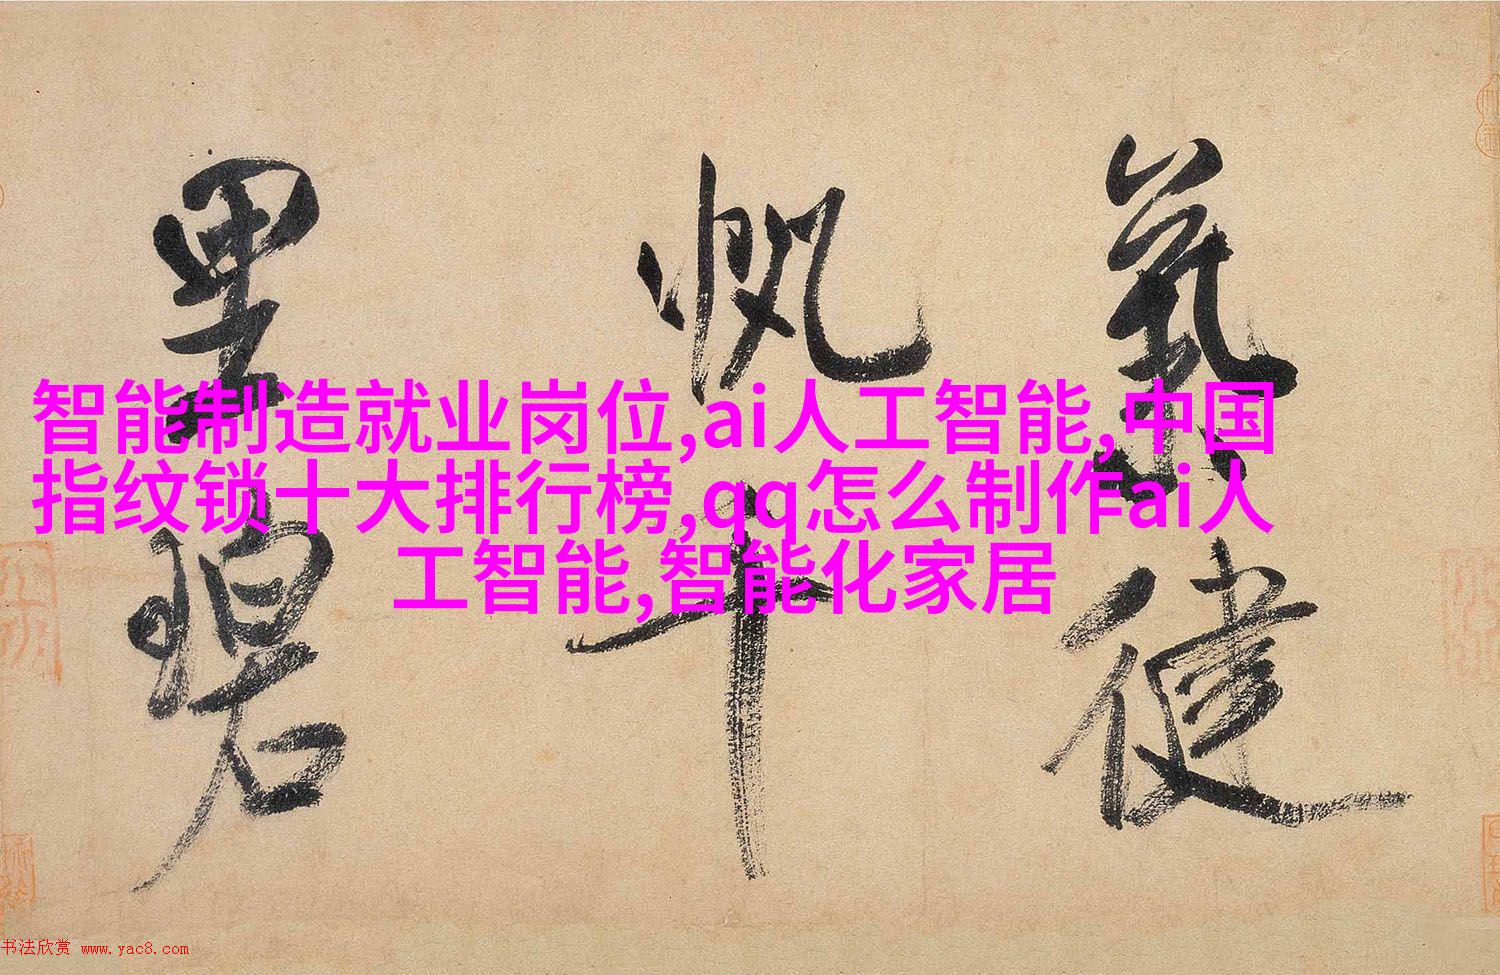 氣健
帆千
里碧
智能制造就业岗位,ai人工智能,中国
指纹锁十大排行榜,qq怎么制作ai人
工智能,智能化家居
书法欣赏 www.yac8.com